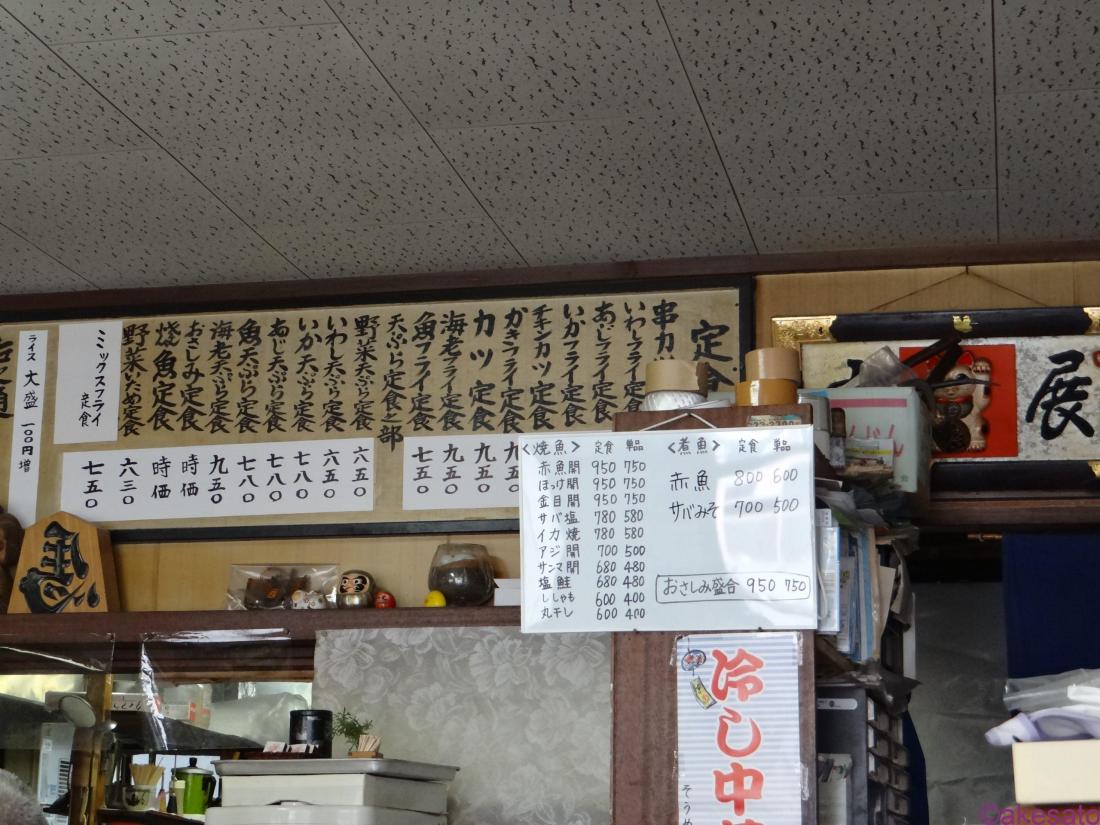 定食
串カ
いわしフライ定食
あじフライ定食
いかフライ定食
チキンカツ定食
かきフライ定食
カツ定食
海老フライ定食
魚フライ定食
天ぷら定食之部
野菜天ぷら定食
いわし天ぷら定食
いか天ぷら定食
あじ天ぷら定食
魚天ぷら定食
海老天ぷら定食
おさしみ定食
焼魚定食
野菜いため定食
ミックスフライ
定食
ライス大盛 一〇〇円増
九五
九五〇
九五〇
七五〇
六五〇
六五〇
七八〇
七八〇
七八〇
九五〇
時価
時価
六三〇
七五〇
<焼魚> 定食 単品
赤魚開 950 750
ほっけ開 950 750
金目開 950 750
サバ塩 780 580
イカ焼 780 580
アジ開 700 500
サンマ開 680 480
塩鮭 680 480
ししゃも 600 400
丸干し 600 400
<煮魚> 定食 単品
赤魚 800 600
サバみそ 700 500
おさしみ盛合 950 750
展
冷し中
そうめ
©akesato